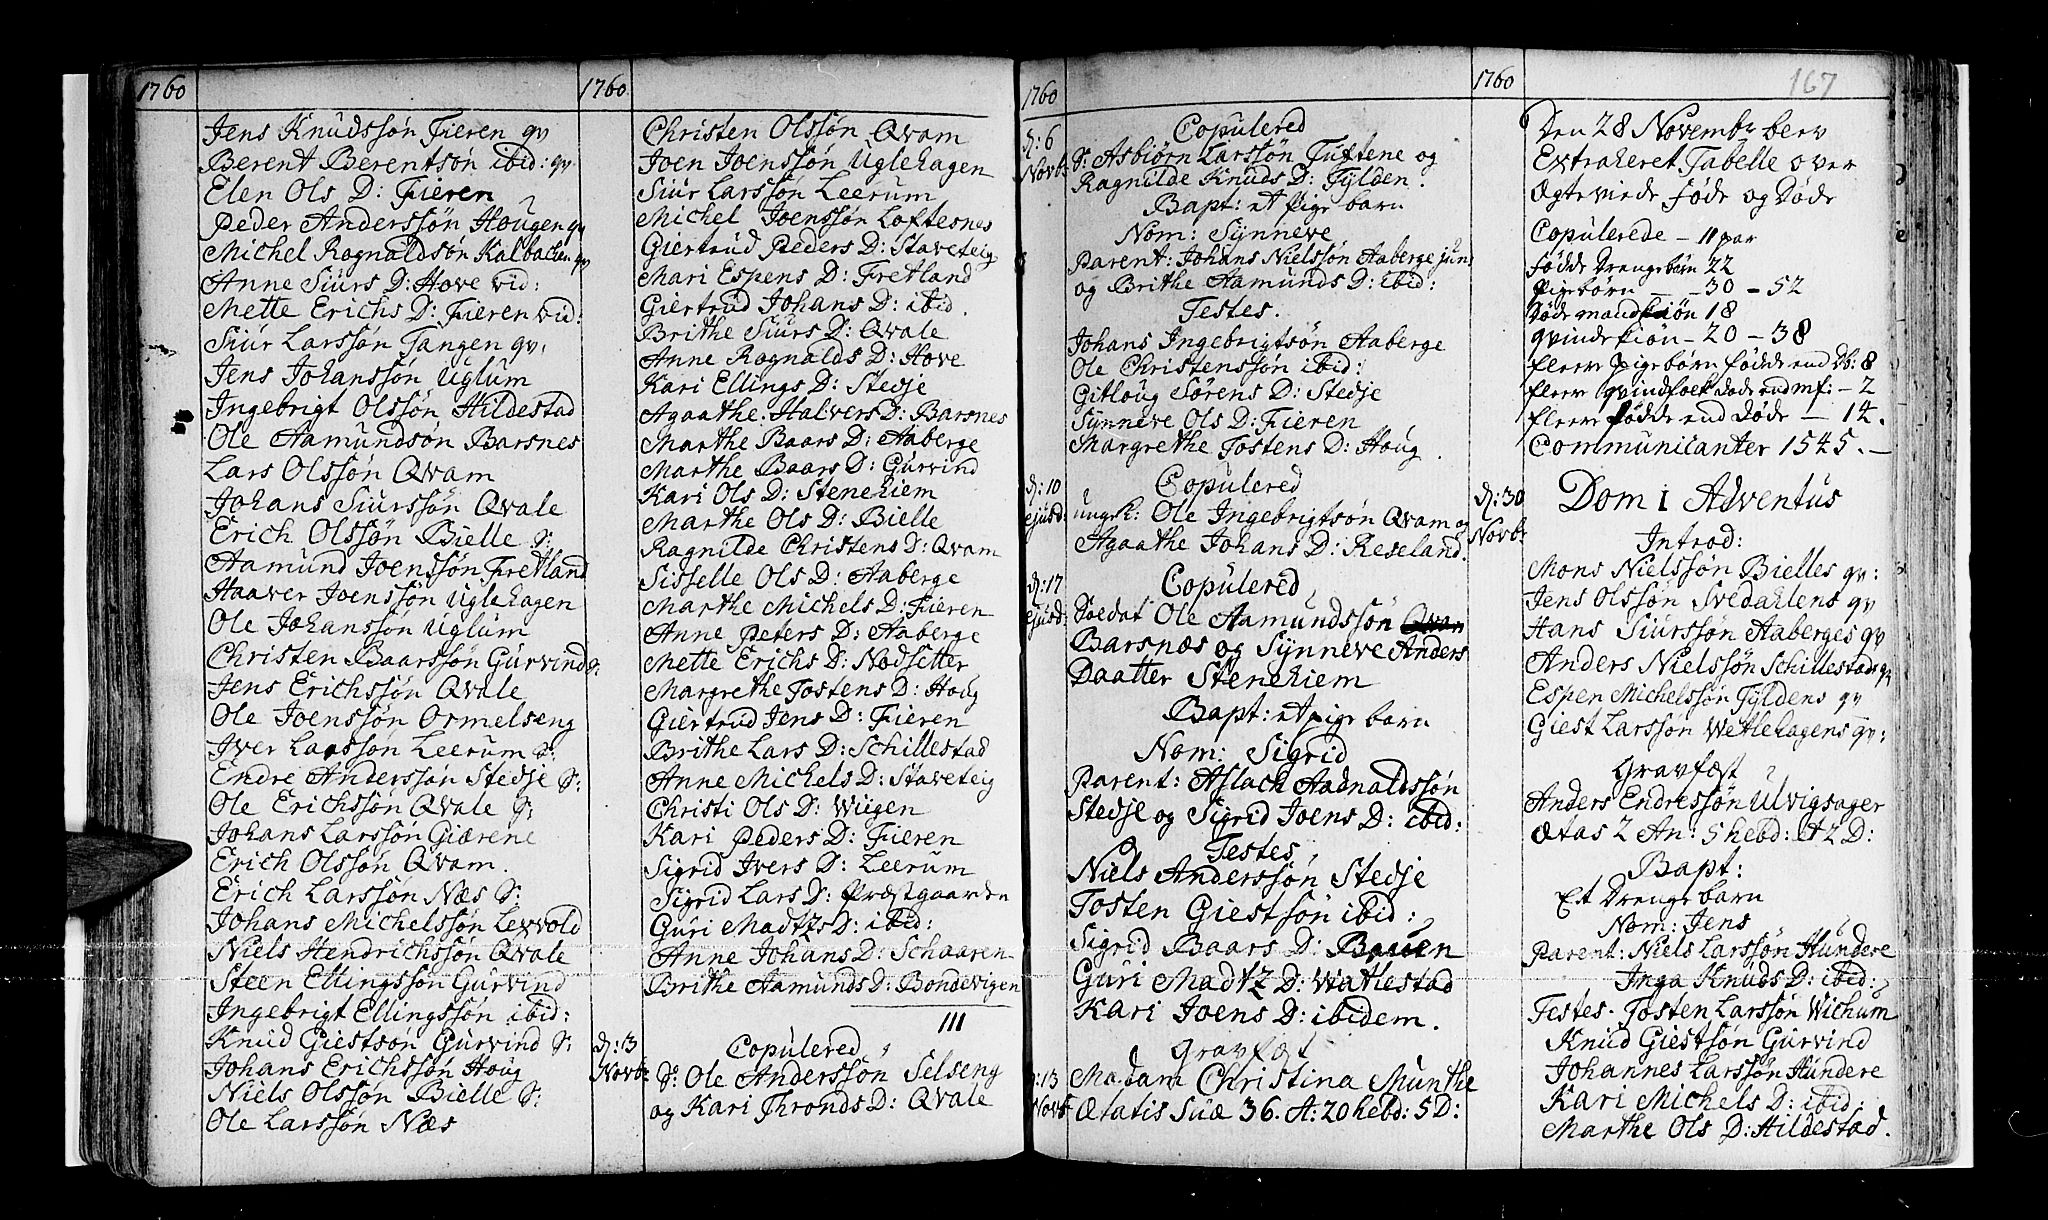 1760
Jens Knudssøn Fieren qv
Berent Berentsøn ibid: qv
Elen Ols D: Fieren
Peder Anderssøn Hougen qv
Michel Rognaldsøn Kalbachen qv
Anne Siurs D: Hove vid:
Mette Erichs D: Fieren vid:
Siur Larssøn Tangen qv:
Jens Johanssøn Uglum
Ingebrigt Olssøn Hildestad
Ole Aamundsøn Barsnes
Lars Olssøn Qvam
Johans Siurssøn Qvale
Erich Olssøn Bielle S:
Aamund Joenssøn Fretland
Haaver Joenssøn Uglehagen
Ole Johanssøn Uglum
Christen Baarssøn Gurvind S:
Jens Erichssøn Qvale
Ole Joenssøn Ormelseng
Iver Larssøn Leerum S:
Endre Anderssøn Stedje S:
Ole Erichssøn Qvale S:
Johans Larssøn Giærene
Erich Olssøn Qvam.
Erich Larssøn Næs S:
Johans Michelssøn Lexvold
Niels Hendrichssøn Qvale
Steen Ellingssøn Gurvind
Ingebrigt Ellingssøn ibid:
Knud Giestsøn Gurvind S:
Johans Erichssøn Houg
Niels Olssøn Bielle S:
Ole Larssøn Næs
1760
Christen Olssøn Qvam
Joen Joenssøn Uglehagen
Siur Larssøn Leerum
Michel Joenssøn Loftesnes
Giertrud Peders D: Staveteig
Mari Espens D: Fretland
Giertrud Johans D: ibid.
Brithe Siurs D: Qvale
Anne Rognalds D: Hove
Kari Ellings D: Stedje
Agaathe Halvers D: Barsnes
Marthe Baars D: Aaberge
Marthe Baars D: Gurvind
Kari Ols D: Stenehiem
Marthe Ols D: Bielle
Ragnilde Christens D: Qvam
Sisselle Ols D: Aaberge
Marthe Michels D: Fieren
Anne Peters D: Aaberge
Mette Erichs D: Nodsetter
Margrethe Tostens D: Houg
Giertrud Jens D: Fieren
Brithe Lars D: Schillestad
Anne Michels D: Staveteig
Christi Ols D: Wiigen
Kari Peders D: Fieren
Sigrid Ivers D: Leerum
Sigrid Lars D: Præstgaarden
Guri Madtzs D: ibid:
Anne Johans D: Schaaren
Brithe Aamunds D: Bondevigen
111
d: 13 Novbr
Copulered
S: Ole Anderssøn Selseng
og Kari Thronds D: Qvale
1760
d: 6 Novbr
Copulered
S: Asbiørn Larssøn Tuftene og
Ragnilde Knuds D: Fylden.
Bapt: et Pige barn
Nom: Synneve
Parent: Johans Nielssøn Aaberge jun:
og Brithe Aamunds D: ibid:
Testes.
Johans Ingebrigtsøn Aaberge
Ole Christenssøn ibid:
Gitloug Sørens D: Stedje
Synneve Ols D: Fieren
Margrethe Tostens D: Houg.
d: 10 ejusd:
Copulered
ungk: Ole Ingebrigtsøn Qvam og
Agaathe Johans D: Reseland.
d: 17 ejusd:
Copulered
Soldat Ole Aamundssøn Qvam
Barsnæs og Synneve Anders
Daatter Stenehiem
Bapt: et pige barn
Nom: Sigrid
Parent: Aslach Aadnaldssøn
Stedje og Sigrid Joens D: ibid:
Testes,
Niels Anderssøn Stedje
Tosten Giestsøn ibid:
Sigrid Baars D: Bøuen
Guri Madtz D: Watlestad
Kari Joens D: ibidem.
Gravfæst
d: 13 Novbr
Madam Christina Munthe
Ætatis Suæ 36. A: 20 hebd: 5 D:
1760
167
Den 28 Novembr blev
Extraheret Tabelle over
Ægteviede føde og Døde
Copulerede - 11 par
fødde Drengebørn 22
Pigebørn - - 30 - 52
Døde mandkiøn 18
qvindekiøn - 20 - 38
flere Pigebørn fødde end Db: 8
flere qvindfolk døde end mf: - 2
flere fødde end døde - 14.
Communicanter 1545. -
d: 30 Novbr
Dom 1 Adventus
Introd:
Mons Nielssøn Bielles qv:
Jens Olssøn Svedahlens qv
Hans Siurssøn Aaberges qv
Anders Nielssøn Schillestads qv
Espen Michelssøn Fyldens qv
Giest Larssøn Wetlehagens qv:
Gravfæst
Anders Endressøn Ulvigsager
Ætas 2 An: 5 hebd: et 2 D:
Bapt:
Et Drenge barn
Nom: Jens
Parent: Niels Larssøn Hundere
Inga Knuds D: ibid:
Testes. Tosten Larssøn Wichum
Knud Giestsøn Gurvind
Johannes Larssøn Hundere
Kari Michels D: ibid:
Marthe Ols D: Hildestad.